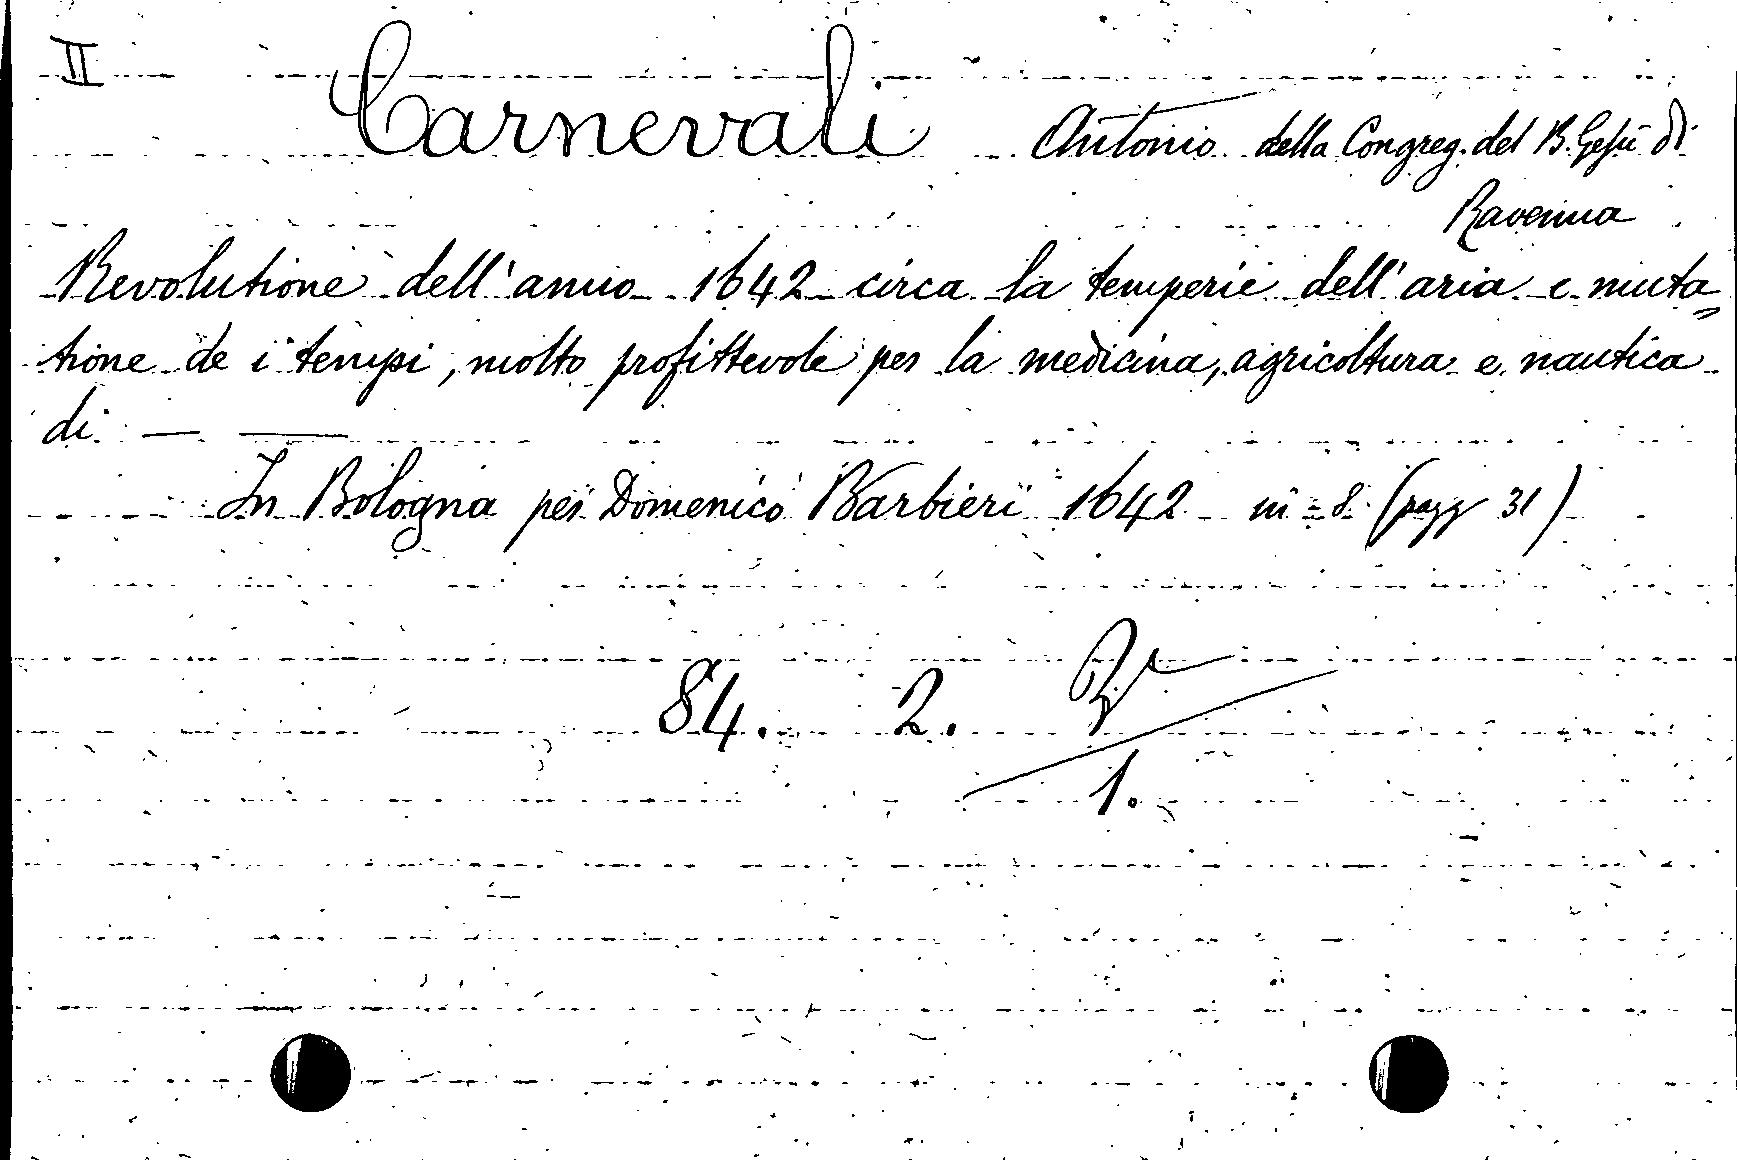 II Carnevali Antonio della Congreg. del B. Gesù di
Ravenna
Revolutione dell'anno 1642 circa la temperie dell'aria e muta=
tione de i tempi, molto profittevole per la medicina, agricoltura e nautica
di — —
In Bologna per Domenico Barbieri 1642 in = 8. (pagg 31)
84. 2.
1.